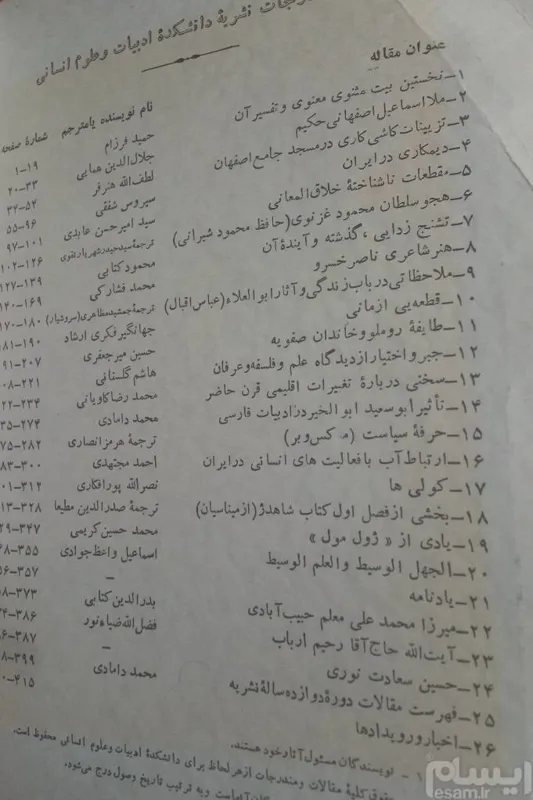 مندرجات نشریهٔ دانشکدهٔ ادبیات و علوم انسانی
عنوان مقاله نام نویسنده یا مترجم شمارهٔ صفحه
۱ـ نخستین بیت مثنوی معنوی و تفسیر آن حمید فرزام ۱-۱۹
۲ـ ملا اسماعیل اصفهانی حکیم جلال‌الدین همایی ۲۰-۳۳
۳ـ تزیینات کاشی‌کاری در مسجد جامع اصفهان لطف‌الله هنرفر ۳۴-۵۴
۴ـ دیمکاری در ایران سیروس شفقی ۵۵-۹۶
۵ـ مقطعات ناشناختهٔ خلاق‌المعانی سید امیرحسن عابدی ۹۷-۱۰۱
۶ـ هجو سلطان محمود غزنوی (حافظ محمود شیرانی) ترجمهٔ سیدحیدر شهریار نقوی ۱۰۲-۱۲۶
۷ـ تشنج زدایی، گذشته و آیندهٔ آن محمود کتابی ۱۲۷-۱۳۹
۸ـ هنر شاعری ناصر خسرو محمد فشارکی ۱۴۰-۱۶۹
۹ـ ملاحظاتی در باب زندگی و آثار ابوالعلاء (عباس اقبال) ترجمهٔ جمشید مظاهری (سروشیار) ۱۷۰-۱۸۰
۱۰ـ قطعه‌یی از مانی جهانگیر فکری ارشاد ۱۸۱-۱۹۰
۱۱ـ طایفهٔ روملو و خاندان صفویه حسین میرجعفری ۹۱-۲۰۷
۱۲ـ جبر و اختیار از دیدگاه علم و فلسفه و عرفان هاشم گلستانی ۰۸-۲۲۱
۱۳ـ سخنی دربارهٔ تغییرات اقلیمی قرن حاضر محمد رضا کاویانی ۲۲-۲۳۴
۱۴ـ تأثیر ابوسعید ابوالخیر در ادبیات فارسی محمد دامادی ۳۵-۲۷۴
۱۵ـ حرفهٔ سیاست (م. کس وبر) ترجمهٔ هرمز انصاری ۷۵-۲۸۲
۱۶ـ ارتباط آب با فعالیت های انسانی در ایران احمد مجتهدی ۸۳-۳۰۰
۱۷ـ کولی ها نصرالله پورافکاری ۰۱-۳۱۲
۱۸ـ بخشی از فصل اول کتاب شاهدژ (از میناسیان) ترجمهٔ صدرالدین مطیعا ۱۳-۳۲۸
۱۹ـ یادی از «ژول مول» محمد حسین کریمی ۲۹-۳۴۷
۲۰ـ الجهل الوسیط والعلم الوسیط اسماعیل واعظ جوادی ۴۸-۳۵۵
۲۱ـ یادنامه – ۵۶-۳۵۷
۲۲ـ میرزا محمد علی معلم حبیب‌آبادی بدرالدین کتابی ۵۸-۳۷۳
۲۳ـ آیت‌الله حاج‌آقا رحیم ارباب فضل‌الله ضیاء نور ۷۴-۳۸۶
۲۴ـ حسین سعادت نوری – ۶-۳۸۷
۲۵ـ فهرست مقالات دورهٔ دوازده سالهٔ نشریه محمد دامادی ۸-۳۹۹
۲۶ـ اخبار و رویدادها ۰-۴۱۵
۱ - نویسندگان مسئول آثار خود هستند.
حقوق کلیهٔ مقالات و مندرجات از هر لحاظ برای دانشکدهٔ ادبیات و علوم انسانی محفوظ است.
و به ترتیب تاریخ وصول درج می‌شود.
ایسام
esam.ir